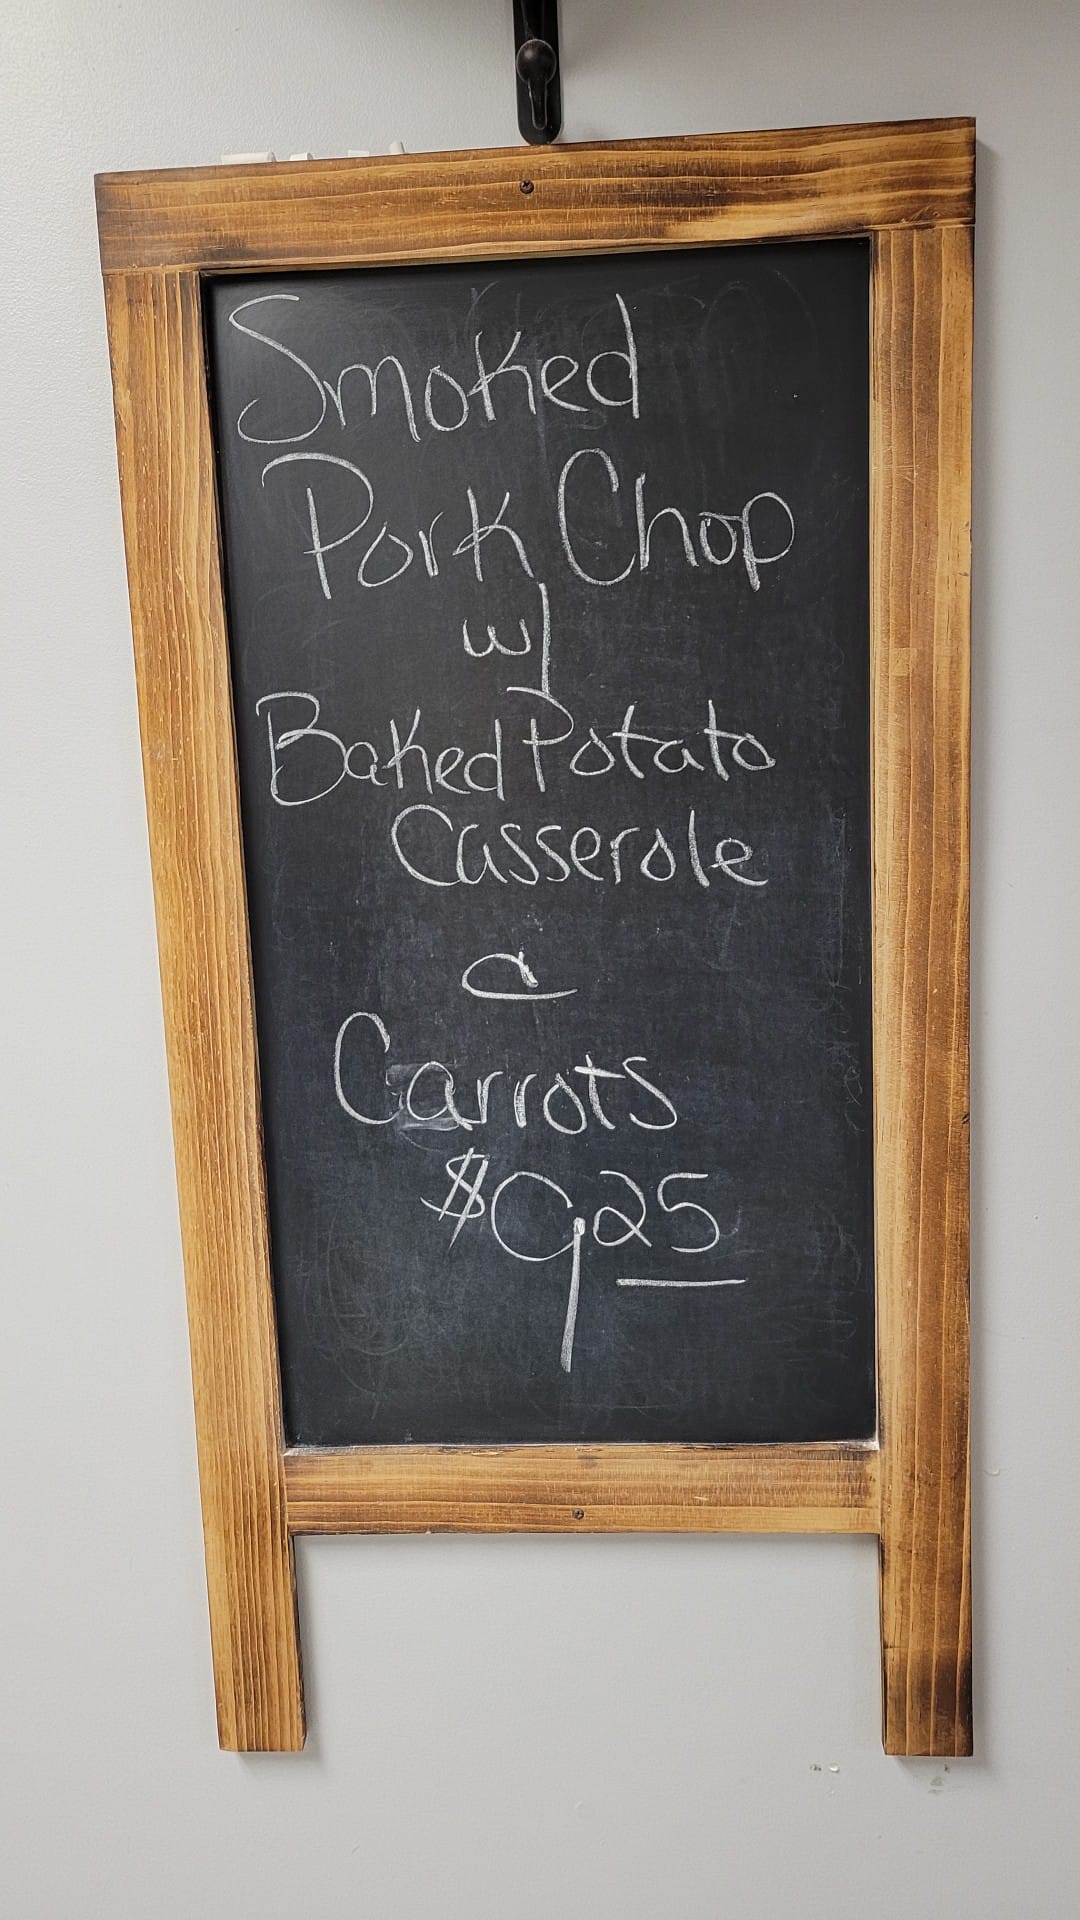 Smoked
Pork Chop
w/
Baked Potato
Casserole
Carrots
$9.25